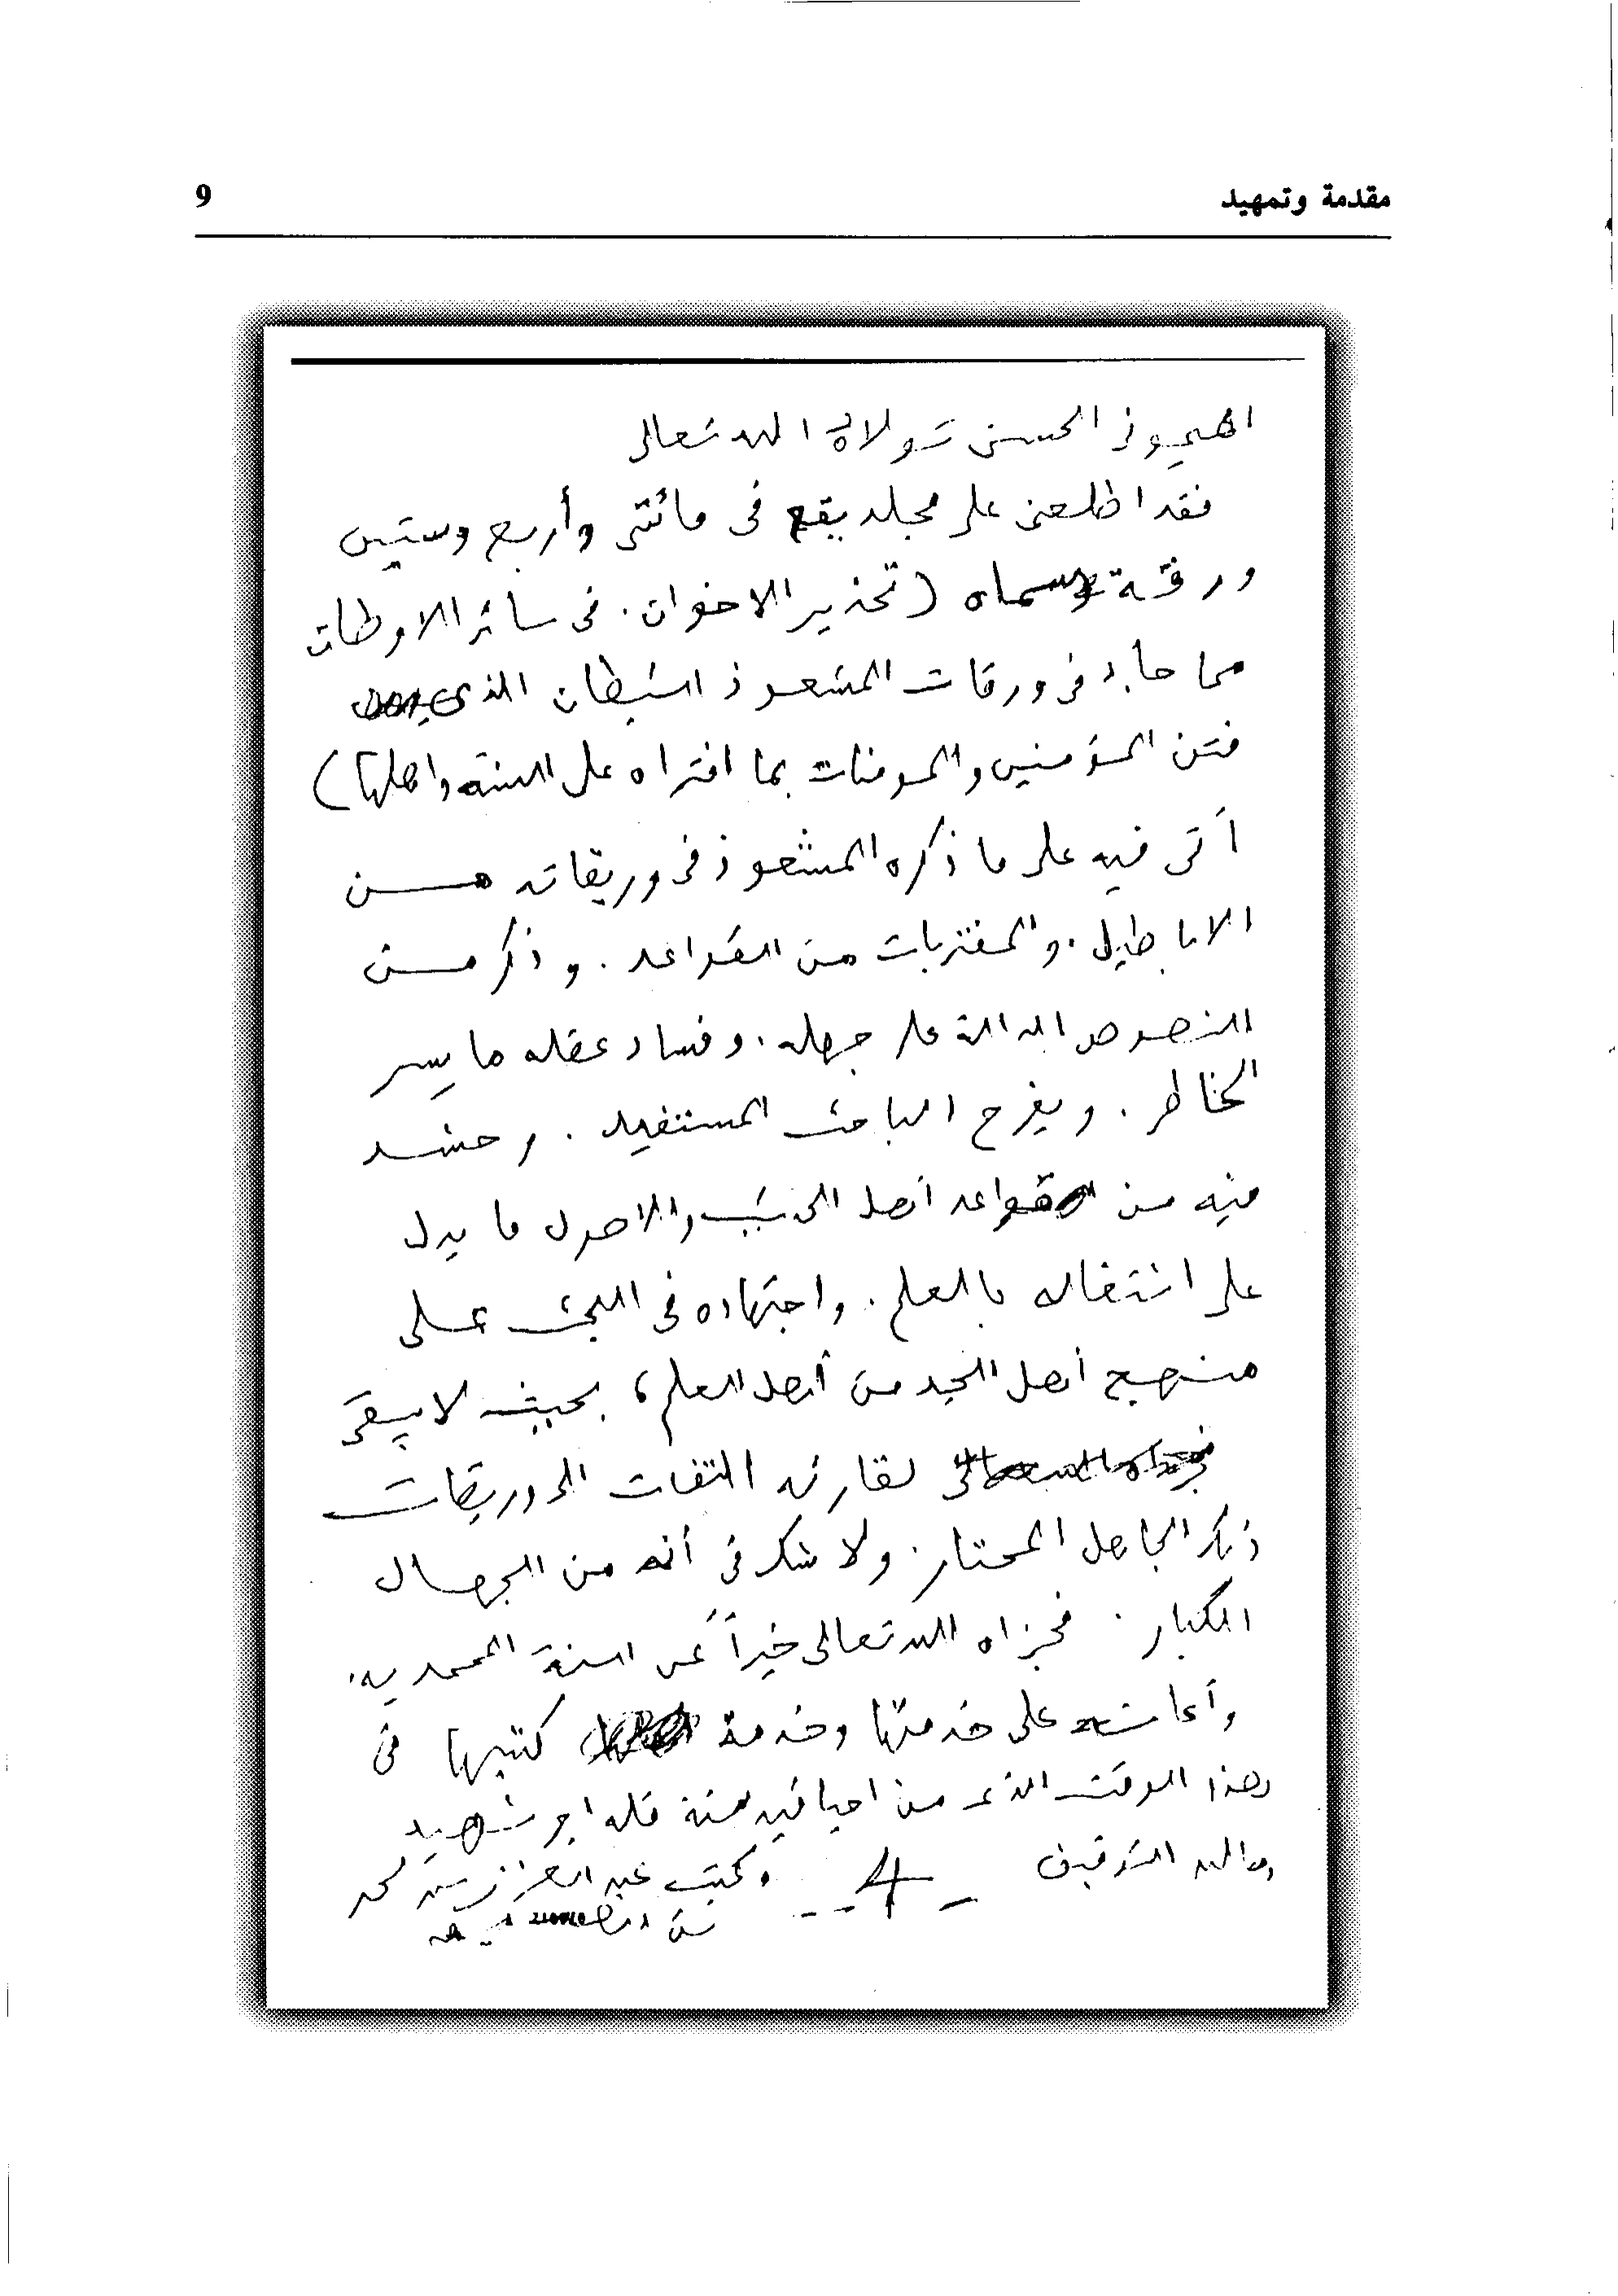 مقدمة وتمهيد
9
الحسن تولاه الله تعالى
فقد اطلعني على مجلد يقع في مائتي وأربع وستين
ورقة سماه (تحذير الاخوان. في سائر الاوطان
مما جاء في ورقات المشعوذ الشيطان الذي
فتن المؤمنين والمومنات بما افتراه على السنة واهلها)
أتى فيه على ما ذكره المشعوذ في وريقاته من
الاباطيل. والمفتريات من القواعد. وذكر من
النصوص الدالة على جهله. وفساد عقله ما يسر
الخاطر. ويفرح الباحث المستفيد. وحشد
فيه من قواعد أهل الحديث والاصول ما يدل
على اشتغاله بالعلم. واجتهاده في البحث على
منهج أهل الجد من أهل العلم، بحيث لا يبقى
لقارئه التفات الى وريقات
ذلك الجاهل المحتار. ولا شك في أنه من الجهال
الكبار. فجزاه الله تعالى خيراً عن السنة المحمدية.
وأعانه على خدمتها وخدمة كتبها في
هذا الوقت الذي من احيا فيه سنة فله اجر شهيد
وبالله التوفيق وكتب عبد العزيز بن محمد
بن